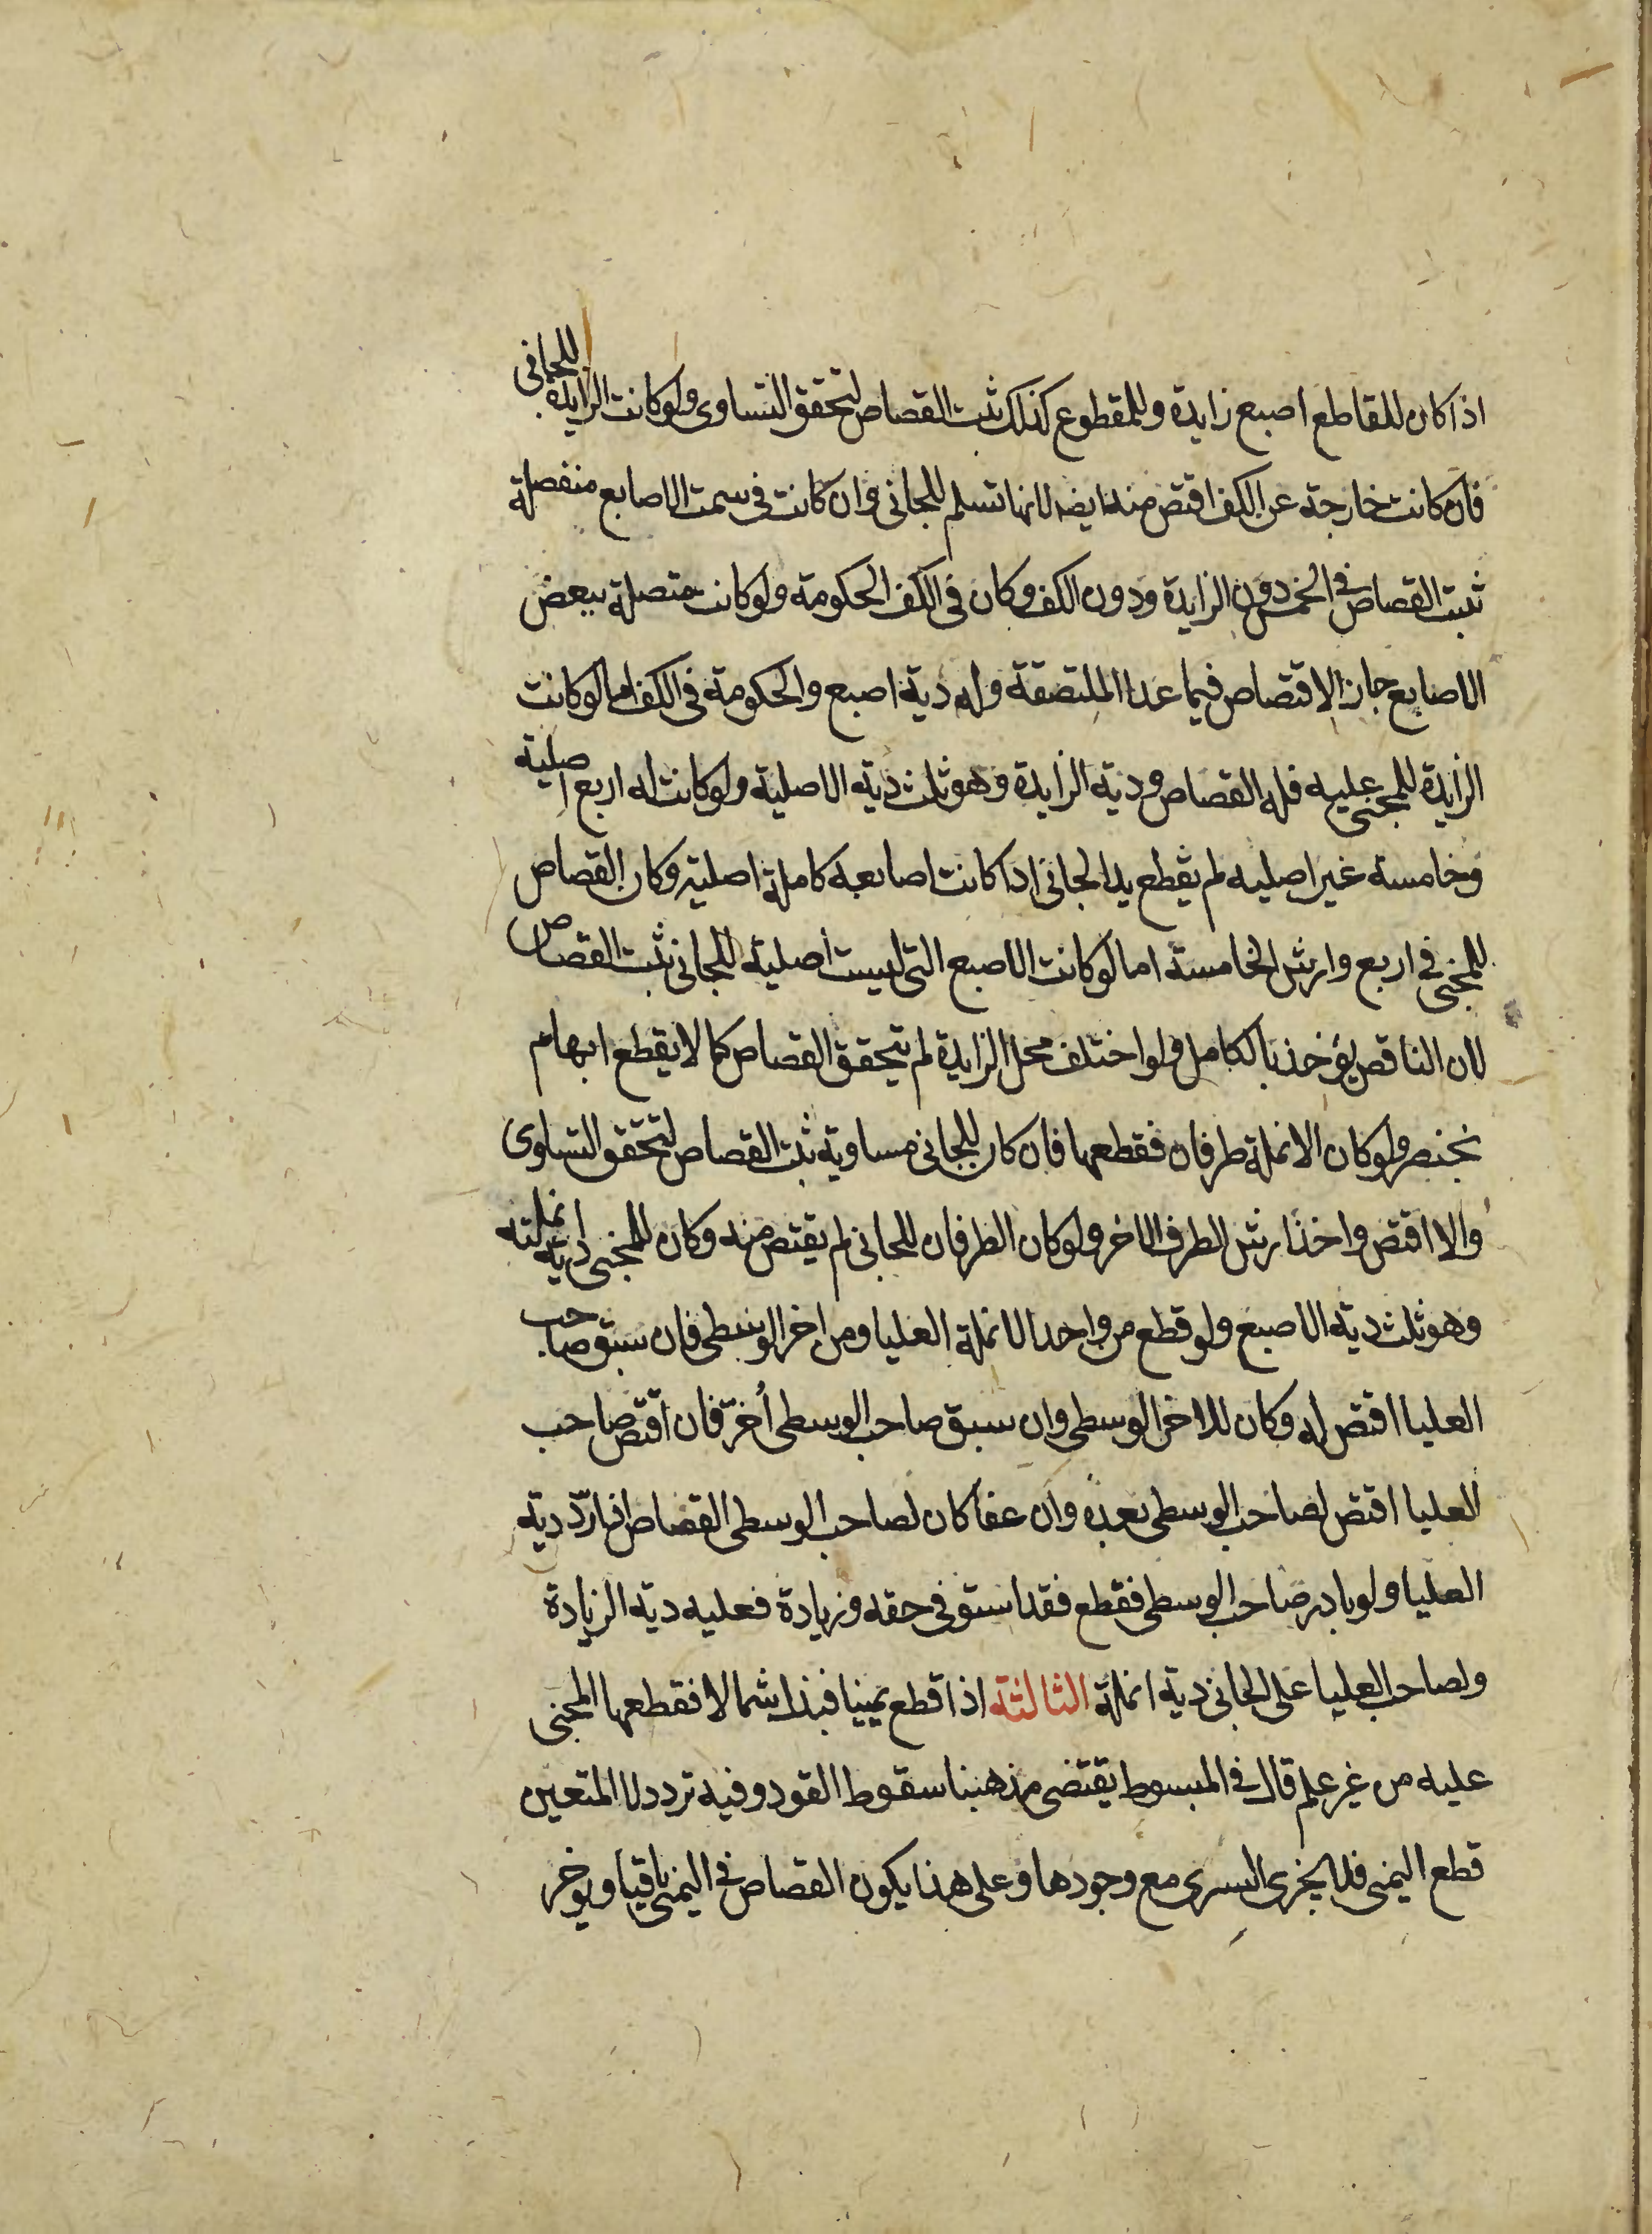 اذا كان للقاطع اصبع زايدة وللمقطوع كذلك ثبت القصاص لتحقق التساوى ولو كانت الزايدة للجانى
فان كانت خارجة عن الكف اقتص منه ايضا لانها تسلم للجانى وان كانت فى سمت الاصابع منفصلة
ثبت القصاص فى الخمس دون الزايدة ودون الكف وكان فى الكف الحكومة ولو كانت متصلة ببعض
الاصابع جاز الاقتصاص فيما عدا الملتصقة وله دية اصبع والحكومة فى الكف اما لو كانت
الزايدة للمجنى عليه فله القصاص ودية الزايدة وهو ثلث دية الاصلية ولو كانت له اربع اصلية
وخامسة غير اصليه لم يقطع يد الجانى اذا كانت اصابعه كاملة اصلية وكان القصاص
للمجنى فى اربع وارش الخامسة اما لو كانت الاصبع التى ليست أصلية للجانى ثبت القصاص
لان الناقص يؤخذ بالكامل ولو اختلف محل الزايدة لم يتحقق القصاص كما لا يقطع ابهام
بخنصر ولو كان الانملة طرفان فقطعها فان كان للجانى مساوية ثبت القصاص لتحقق التساوى
والا اقتص واخذ ارش الطرف الاخر ولو كان الطرفان للجانى لم يقتص منه وكان للمجنى دية انملته
وهو ثلث دية الاصبع ولو قطع من واحد الانملة العليا ومن اخر الوسطى فان سبق صاحب
العليا اقتص له وكان للاخر الوسطى وان سبق صاحب الوسطى أخر فان اقتص صاحب
العليا اقتص لصاحب الوسطى بعده وان عفا كان لصاحب الوسطى القصاص اذا ردّ دية
العليا ولو بادر صاحب الوسطى فقطع فقد استوفى حقه وزيادة فعليه دية الزيادة
ولصاحب العليا على الجانى دية انملة الثالثة اذا قطع يمينا فبذل شمالا فقطعها المجنى
عليه من غير علم قال فى المبسوط يقتضى مذهبنا سقوط القود وفيه تردد لان المتعين
قطع اليمنى فلا يجزى اليسرى مع وجودها وعلى هذا يكون القصاص فى اليمنى باقيا ويوخر